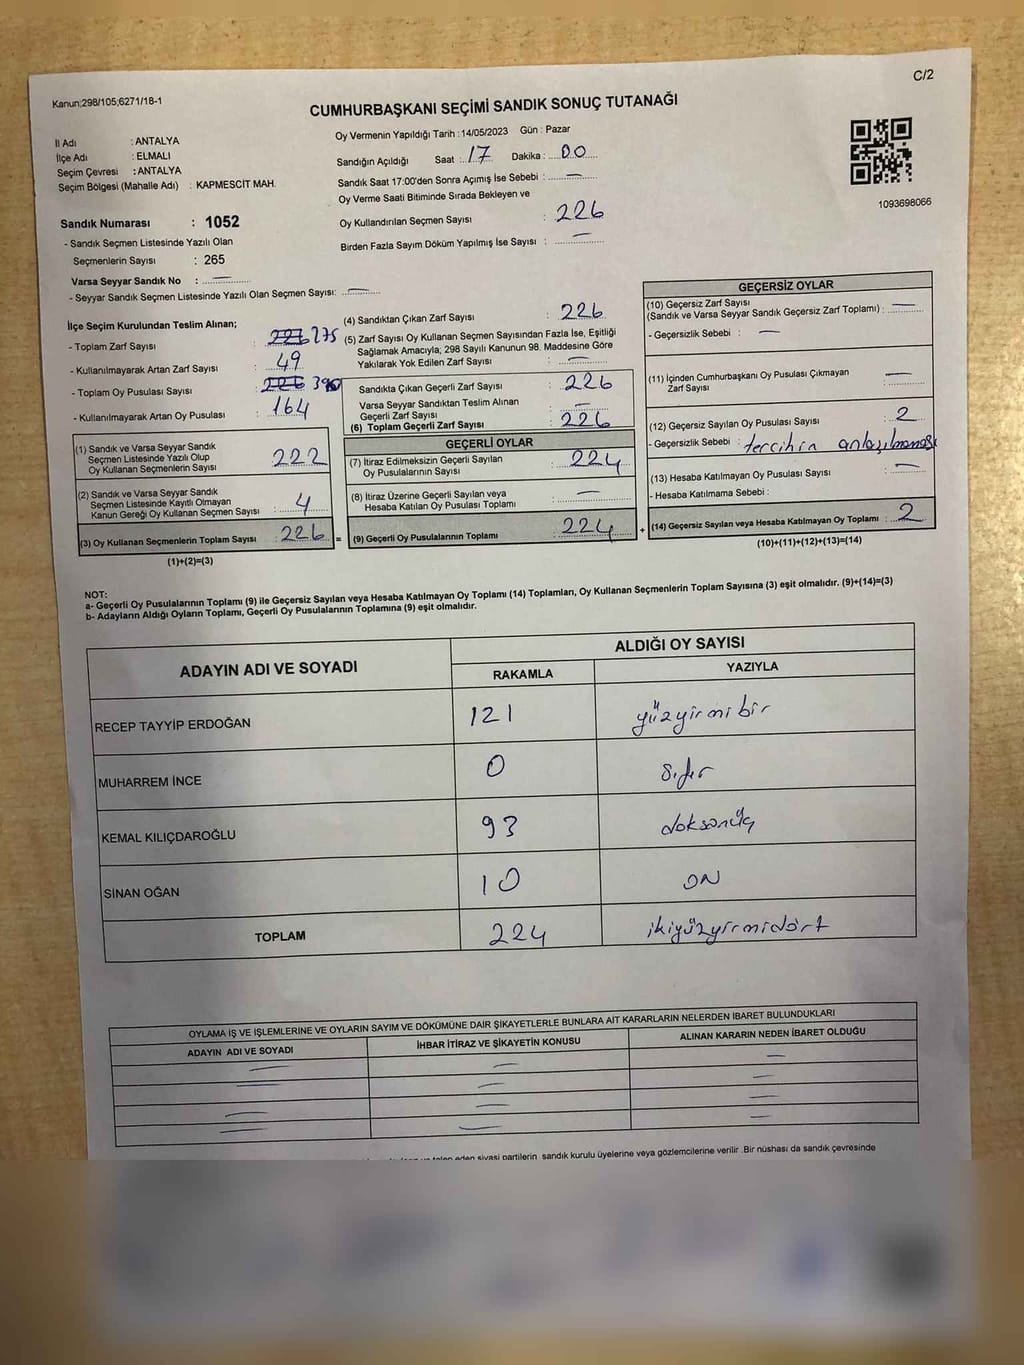 C/2
Kanun;298/105;6271/18-1
CUMHURBAŞKANI SEÇİMİ SANDIK SONUÇ TUTANAĞI
İl Adı : ANTALYA
İlçe Adı : ELMALI
Seçim Çevresi : ANTALYA
Seçim Bölgesi (Mahalle Adı) : KAPMESCİT MAH.
Sandık Numarası : 1052
- Sandık Seçmen Listesinde Yazılı Olan
Seçmenlerin Sayısı : 265
Varsa Seyyar Sandık No : —
- Seyyar Sandık Seçmen Listesinde Yazılı Olan Seçmen Sayısı: —
Oy Vermenin Yapıldığı Tarih : 14/05/2023 Gün : Pazar
Sandığın Açıldığı Saat : 17 Dakika : 00
Sandık Saat 17:00'den Sonra Açımış İse Sebebi : —
Oy Verme Saati Bitiminde Sırada Bekleyen ve
Oy Kullandırılan Seçmen Sayısı : 226
Birden Fazla Sayım Döküm Yapılmış İse Sayısı : —
1093698066
İlçe Seçim Kurulundan Teslim Alınan;
- Toplam Zarf Sayısı : 275
- Kullanılmayarak Artan Zarf Sayısı : 49
- Toplam Oy Pusulası Sayısı : 390
- Kullanılmayarak Artan Oy Pusulası : 164
(1) Sandık ve Varsa Seyyar Sandık
Seçmen Listesinde Yazılı Olup
Oy Kullanan Seçmenlerin Sayısı 222
(2) Sandık ve Varsa Seyyar Sandık
Seçmen Listesinde Kayıtlı Olmayan
Kanun Gereği Oy Kullanan Seçmen Sayısı : 4
(3) Oy Kullanan Seçmenlerin Toplam Sayısı : 226 =
(1)+(2)=(3)
(4) Sandıktan Çıkan Zarf Sayısı : 226
(5) Zarf Sayısı Oy Kullanan Seçmen Sayısından Fazla İse, Eşitliği
Sağlamak Amacıyla; 298 Sayılı Kanunun 98. Maddesine Göre
Yakılarak Yok Edilen Zarf Sayısı : —
Sandıkta Çıkan Geçerli Zarf Sayısı : 226
Varsa Seyyar Sandıktan Teslim Alınan
Geçerli Zarf Sayısı : —
(6) Toplam Geçerli Zarf Sayısı : 226
GEÇERLİ OYLAR
(7) İtiraz Edilmeksizin Geçerli Sayılan
Oy Pusulalarının Sayısı : 224
(8) İtiraz Üzerine Geçerli Sayılan veya
Hesaba Katılan Oy Pusulası Toplamı : —
(9) Geçerli Oy Pusulalarının Toplamı : 224 +
GEÇERSİZ OYLAR
(10) Geçersiz Zarf Sayısı
(Sandık ve Varsa Seyyar Sandık Geçersiz Zarf Toplamı) : —
- Geçersizlik Sebebi : —
(11) İçinden Cumhurbaşkanı Oy Pusulası Çıkmayan
Zarf Sayısı : —
(12) Geçersiz Sayılan Oy Pusulası Sayısı : 2
- Geçersizlik Sebebi : tercihin anlaşılmaması
(13) Hesaba Katılmayan Oy Pusulası Sayısı : —
- Hesaba Katılmama Sebebi :
(14) Geçersiz Sayılan veya Hesaba Katılmayan Oy Toplamı : 2
(10)+(11)+(12)+(13)=(14)
NOT:
a- Geçerli Oy Pusulalarının Toplamı (9) ile Geçersiz Sayılan veya Hesaba Katılmayan Oy Toplamı (14) Toplamları, Oy Kullanan Seçmenlerin Toplam Sayısına (3) eşit olmalıdır. (9)+(14)=(3)
b- Adayların Aldığı Oyların Toplamı, Geçerli Oy Pusulalarının Toplamına (9) eşit olmalıdır.
ADAYIN ADI VE SOYADI
ALDIĞI OY SAYISI
RAKAMLA YAZIYLA
RECEP TAYYİP ERDOĞAN 121 yüzyirmibir
MUHARREM İNCE 0 sıfır
KEMAL KILIÇDAROĞLU 93 doksanüç
SİNAN OĞAN 10 ON
TOPLAM 224 ikiyüzyirmidört
OYLAMA İŞ VE İŞLEMLERİNE VE OYLARIN SAYIM VE DÖKÜMÜNE DAİR ŞİKAYETLERLE BUNLARA AİT KARARLARIN NELERDEN İBARET BULUNDUKLARI
ADAYIN ADI VE SOYADI İHBAR İTİRAZ VE ŞİKAYETİN KONUSU ALINAN KARARIN NEDEN İBARET OLDUĞU
— — —
— — —
— — —
— — —
eden siyasi partilerin sandık kurulu üyelerine veya gözlemcilerine verilir .Bir nüshası da sandık çevresinde